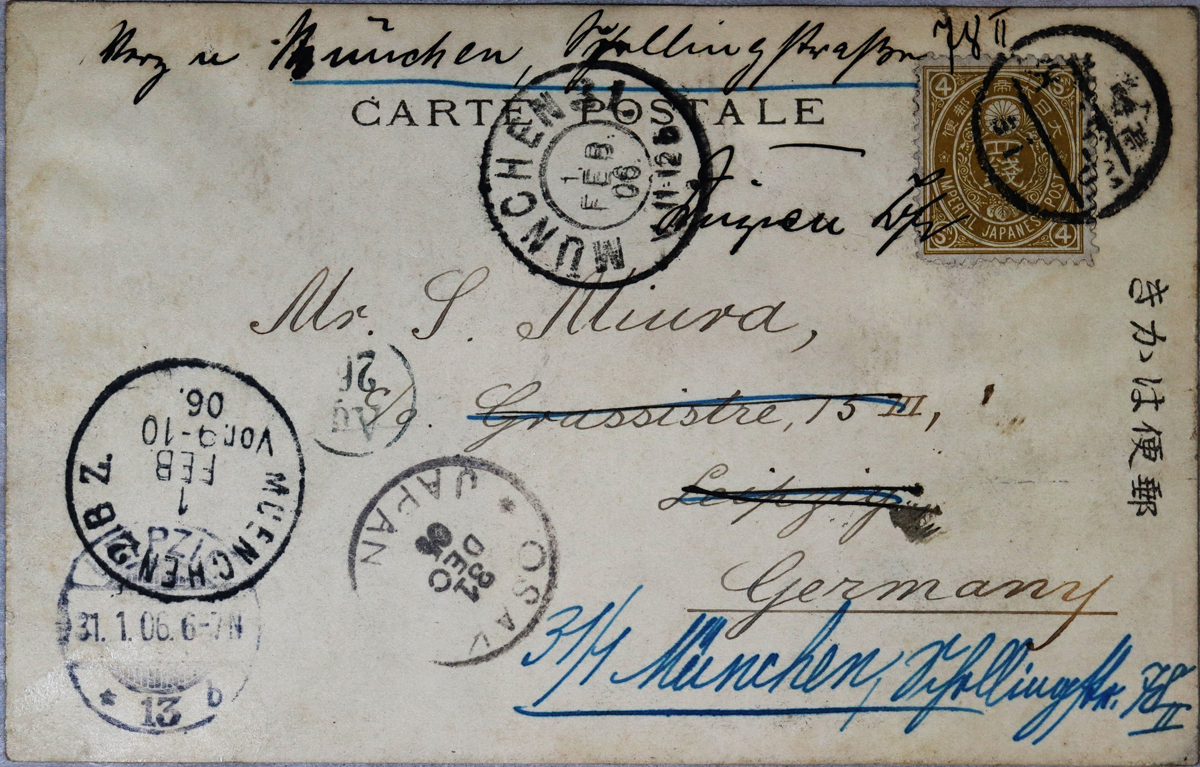 Verz n München, Schellingstraße 78 II
CARTE POSTALE
MÜNCHEN 31.
1
FEB.
06
11-12
4 S
IMPERIAL JAPANESE POST
Sn 4
Mr. S. Miura,
Grassistre, 15 III,
Leipzig
Germany
きかは便郵
MUENCHEN 2 B.Z.
1
FEB
Vor.9-10
06.
OSAKA
JAPAN
31
DEC
31.1.06.6-7N
* 13 b
31/1 München, Schellingstr. 78 II